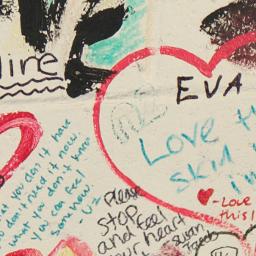 lire
EVA
Love th
skin
i'm
-Love
this!
you don't have
don't need it now.
what you don't know
You can feel
somehow.
-U2
Please
STOP
and feel
your heart
susan